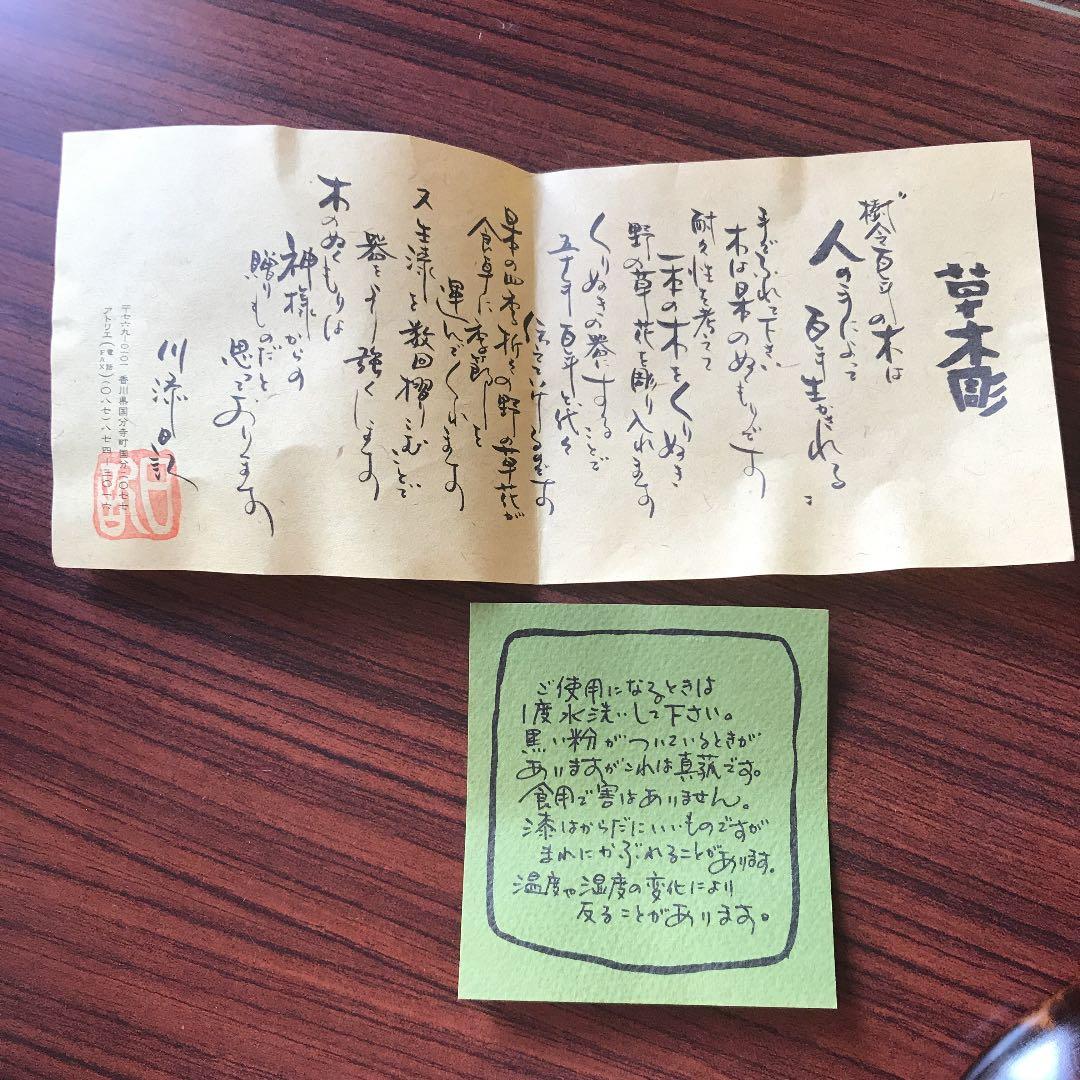 草木彫
樹令百年の木は
人の手によって
百年生かされる
手でふれて下さい
木は日本のぬくもりです
耐久性を考えて
一本の木をくりぬき
野の草花を彫り入れます
くりぬきの器にすることで
五十年百年と代々
伝えていけるのです
日本の四季折々の野の草花が
食卓に季節を
運んでくれます
又生漆を数回摺りこむことで
器をより強くします
木のぬくもりは
神様からの
贈りものだと
思っております
川添日記
〒七六九-〇一〇一 香川県国分寺町国分一〇七七
アトリエ(電話FAX)(〇八七)八七四-三〇一六
ご使用になるときは
1度水洗いして下さい。
黒い粉がついているときが
ありますがこれは真菰です。
食用で害はありません。
漆はからだにいいものですが
まれにかぶれることがあります。
温度や湿度の変化により
反ることがあります。